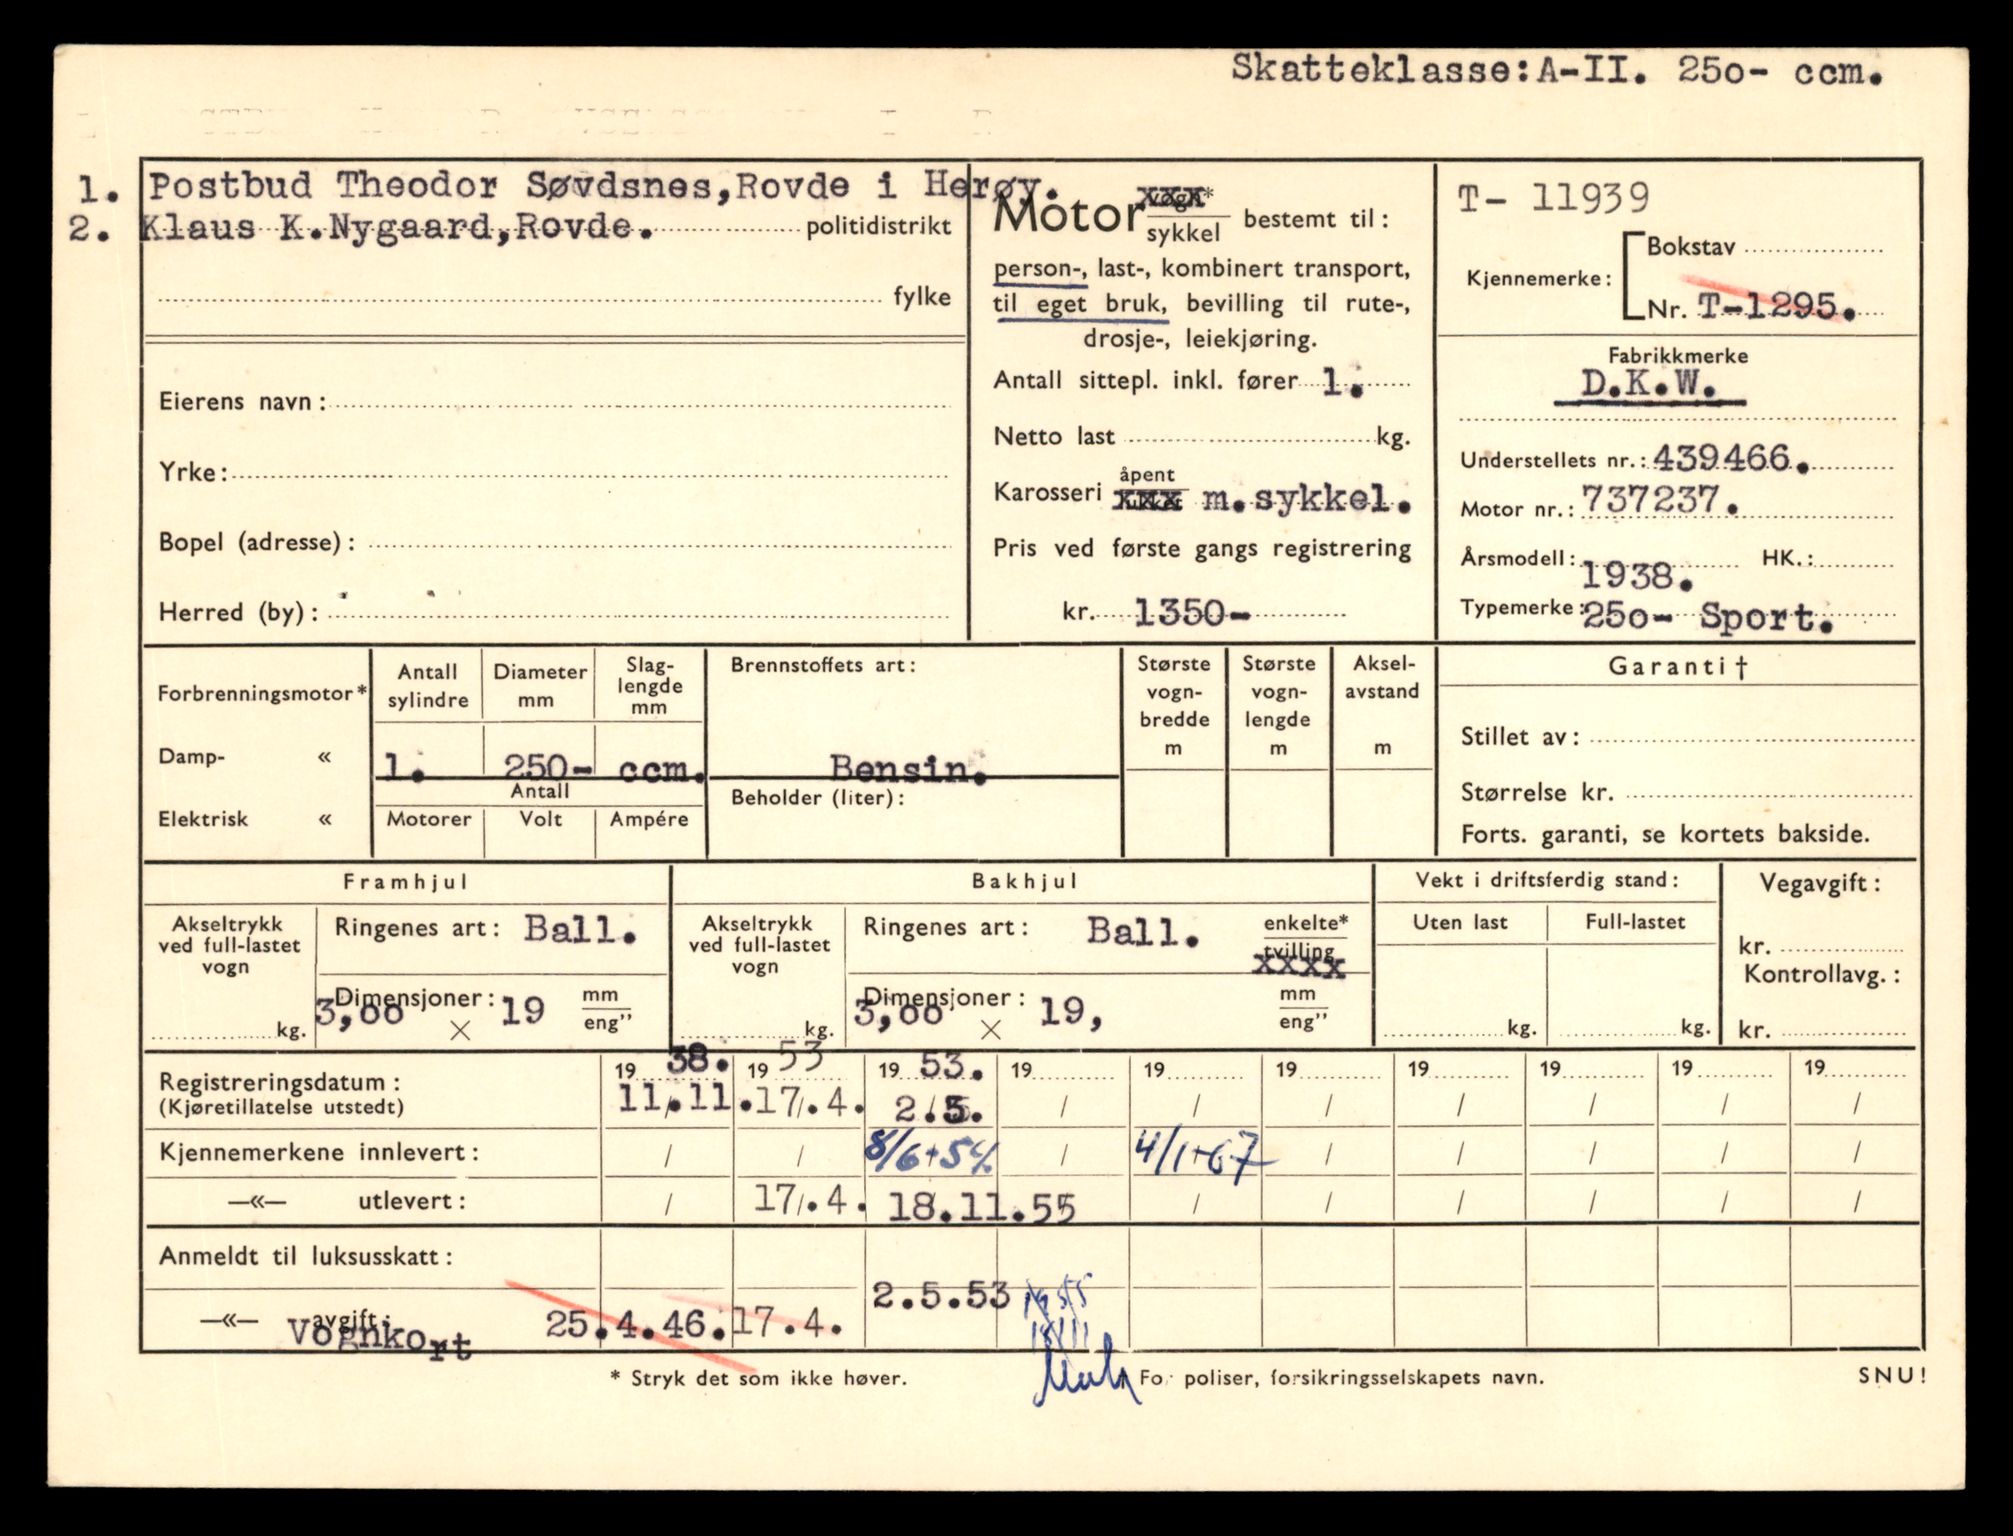 Skatteklasse:A-II. 250- ccm.
1. Postbud Theodor Søvdsnes,Rovde i Herøy.
2. Klaus K.Nygaard,Rovde. politidistrikt
fylke
Eierens navn:
Yrke:
Bopel (adresse):
Herred (by):
Motor vogn* xxx
sykkel bestemt til:
person-, last-, kombinert transport,
til eget bruk, bevilling til rute-,
drosje-, leiekjøring.
Antall sittepl. inkl. fører 1.
Netto last kg.
Karosseri åpent
xxx m.sykkel.
Pris ved første gangs registrering
kr. 1350-
T- 11939
Bokstav
Kjennemerke:
Nr. T-1295.
Fabrikkmerke
D.K.W.
Understellets nr.: 439466.
Motor nr.: 737237.
Årsmodell: 1938. HK.:
Typemerke: 250- Sport.
Forbrenningsmotor*
Damp- «
Elektrisk «
Antall sylindre
Diameter mm
Slag-lengde mm
1. 250- ccm.
Antall
Motorer Volt Ampére
Brennstoffets art:
Bensin.
Beholder (liter):
Største vogn-bredde m
Største vogn-lengde m
Aksel-avstand m
Garanti†
Stillet av:
Størrelse kr.
Forts. garanti, se kortets bakside.
Framhjul
Akseltrykk ved full-lastet vogn
kg.
Ringenes art: Ball.
Dimensjoner: mm
3,00 × 19 eng”
Bakhjul
Akseltrykk ved full-lastet vogn
kg.
Ringenes art: Ball. enkelte*
tvilling
xxxx
Dimensjoner: mm
3,00 × 19, eng”
Vekt i driftsferdig stand:
Uten last Full-lastet
kg. kg.
Vegavgift:
kr.
Kontrollavg.:
kr.
19 38. 19 53 19 53. 19 19 19 19 19 19 19
Registreringsdatum:
(Kjøretillatelse utstedt) 11.11. 17.4. 2.5. / / / / / / /
Kjennemerkene innlevert: / / 8/6+54 / 4/1+67 / / / / /
—«— utlevert: / 17.4. 18.11.55 / / / / / /
Anmeldt til luksusskatt:
—«— avgift: 2.5.53 1955
Vognkort 25.4.46. 17.4. 18/11
* Stryk det som ikke høver. † For poliser, forsikringsselskapets navn. SNU!